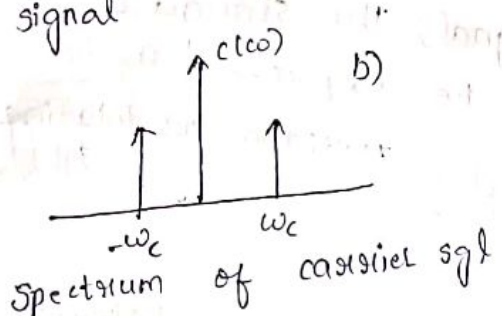 signal
c(ω)
b)
-ωc
ωc
Spectrum of carrier sgl